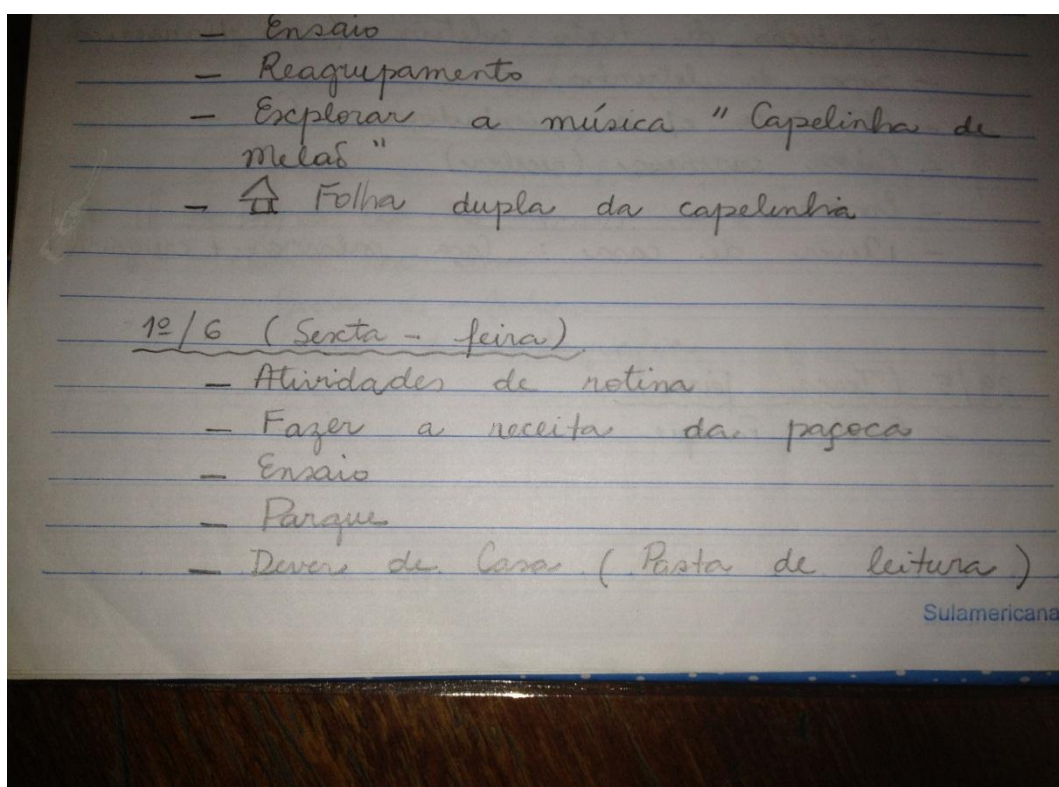 - Ensaio
- Reagrupamento
- Explorar a música "Capelinha de
melão"
- Folha dupla da capelinha
1º/6 (Sexta-feira)
- Atividades de rotina
- Fazer a receita da paçoca
- Ensaio
- Parque
- Dever de Casa (Pasta de leitura)
Sulamericana